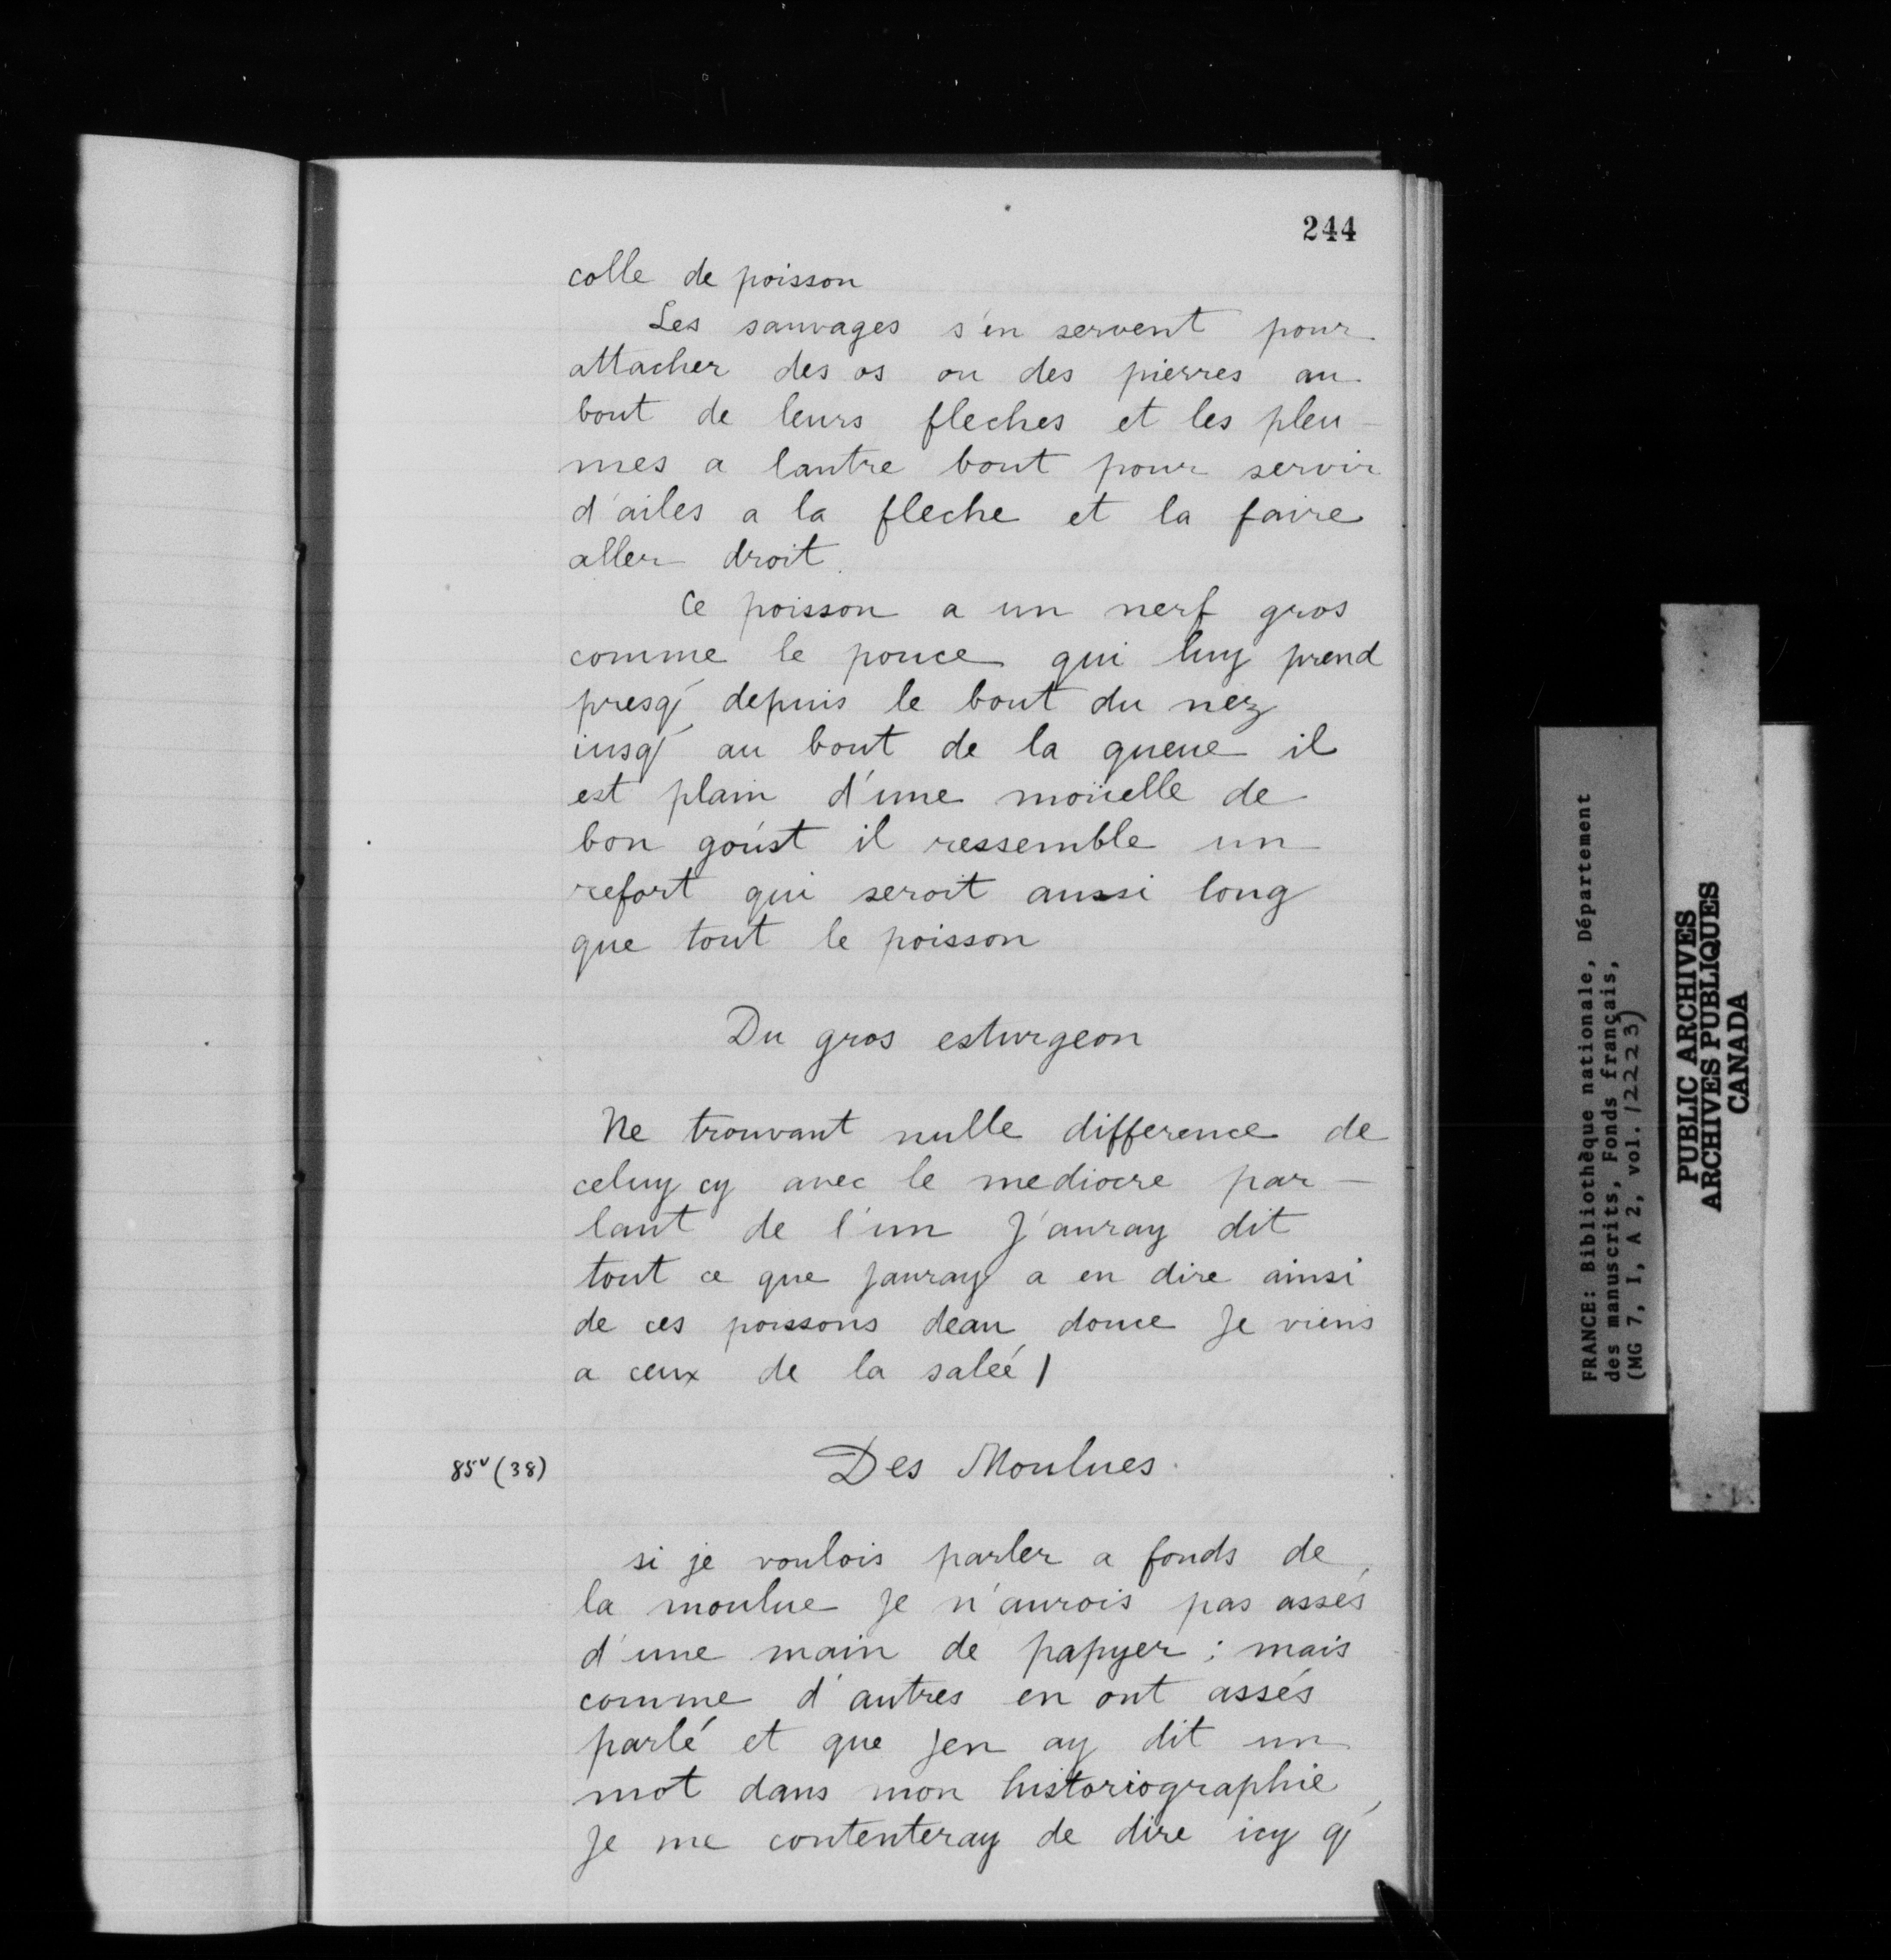 244
colle de poisson
Les sauvages s'en servent pour
attacher des os ou des pierres au
bout de leurs fleches et les pleu-
mes a lautre bout pour servir
d'ailes a la fleche et la faire
aller droit.
Ce poisson a un nerf gros
comme le pouce qui luy prend
presq' depuis le bout du nez
iusq' au bout de la queue il
est plain d'une moüelle de
bon goúst il ressemble un
refort qui seroit aussi long
que tout le poisson
Du gros esturgeon
Ne trouvant nulle difference de
celuy cy avec le mediocre par-
lant de l'un J'auray dit
tout ce que Jauray a en dire ainsi
de ces poissons deau douce Je viens
a ceux de la saleé /
85v (38)
Des Moulues.
si je voulois parler a fonds de
la moulue Je n'aurois pas assés
d'une main de papyer ; mais
comme d'autres en ont assés
parlé et que Jen ay dit un
mot dans mon historiographie,
Je me contenteray de dire icy q'
FRANCE: Bibliothèque nationale, Département
des manuscrits, Fonds français,
(MG 7, I, A 2, vol. 12223)
PUBLIC ARCHIVES
ARCHIVES PUBLIQUES
CANADA